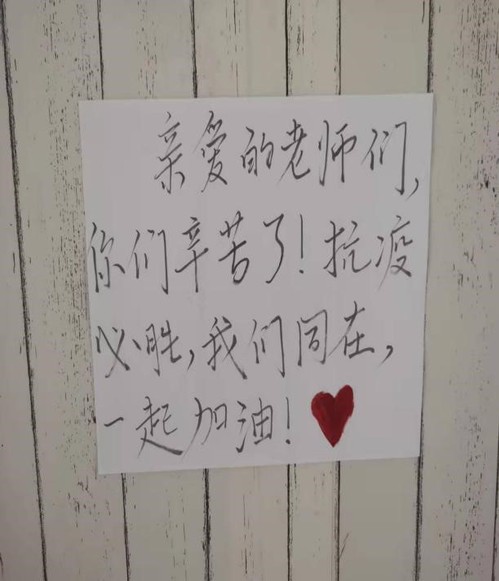 亲爱的老师们,
你们辛苦了!抗疫
必胜,我们同在,
一起加油!